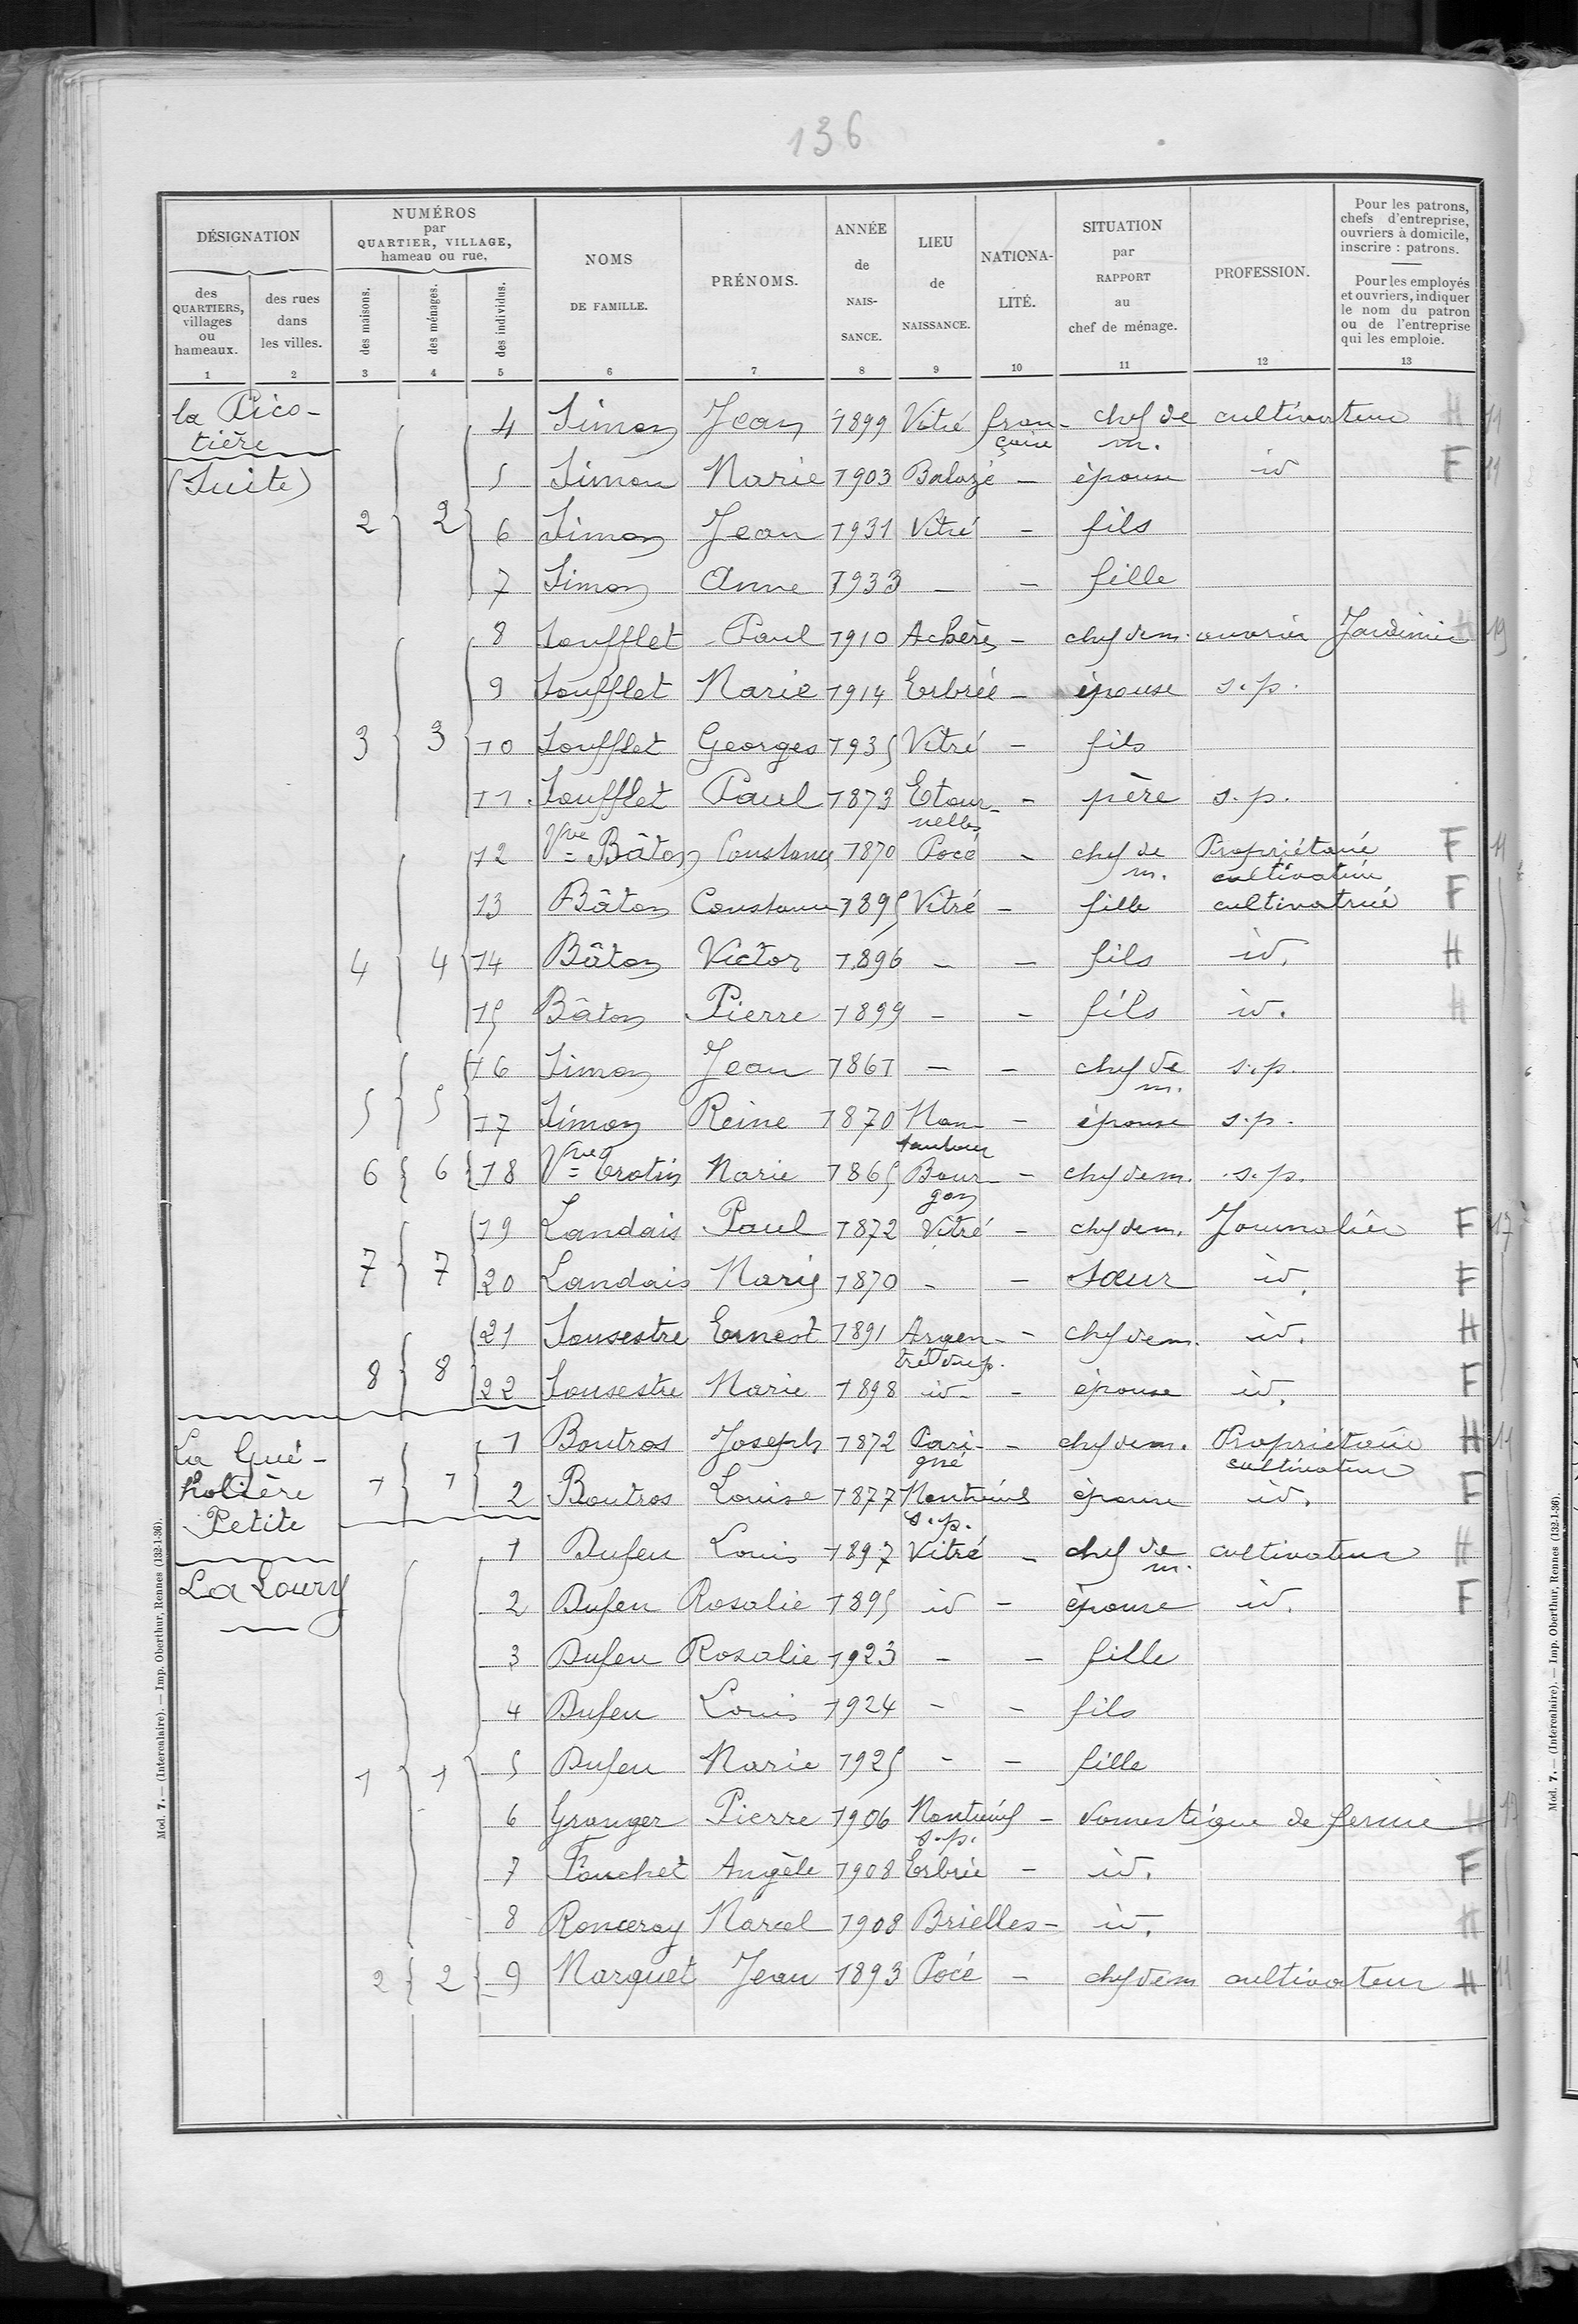 136
DÉSIGNATION
des QUARTIERS, villages ou hameaux.
des rues dans les villes.
NUMÉROS par QUARTIER, VILLAGE, hameau ou rue.
des maisons.
des ménages.
des individus.
NOMS DE FAMILLE.
PRÉNOMS.
ANNÉE de NAISSANCE.
LIEU de NAISSANCE.
NATIONALITÉ.
SITUATION par RAPPORT au chef de ménage.
PROFESSION.
Pour les patrons, chefs d'entreprise, ouvriers à domicile, inscrire : patrons.
Pour les employés et ouvriers, indiquer le nom du patron ou de l'entreprise qui les emploie.
1 2 3 4 5 6 7 8 9 10 11 12 13
la Pico-
tière
(Suite)
4 Simon Jean 1899 Vitré fran-çaise chef de m. cultivateur H 11
5 Simon Marie 1903 Balazé - épouse id F 11
2 2 6 Simon Jean 1931 Vitré - fils
7 Simon Anne 1933 - - fille
8 Soufflet Paul 1910 Achères - chef de m. ouvrier Jardinier H 19
9 Soufflet Marie 1914 Erbrée - épouse s.p.
3 3 10 Soufflet Georges 1935 Vitré - fils
11 Soufflet Paul 1873 Etour-nelles - père s.p.
12 Vve Bâton Constance 1870 Pocé - chef de m. Propriétaire cultivateur F 11
13 Bâton Constance 1895 Vitré - fille cultivatrice F
4 4 14 Bâton Victor 1896 - - fils id. H
15 Bâton Pierre 1899 - - fils id. H
16 Simon Jean 1861 - - chef de m. s.p.
5 5 17 Simon Reine 1870 Mon-tautour - épouse s.p.
6 6 18 Vve Crotin Marie 1865 Bour-gon - chef de m. s.p.
19 Landais Paul 1872 Vitré - chef de m. Journalier F 17
7 7 20 Landais Marie 1870 - - sœur id. F
21 Sousestre Ernest 1891 Argen-tré du p. - chef de m. id. H
8 8 22 Sousestre Marie 1898 id - épouse id. F
La Gué-
holière
Petite
1 Boutros Joseph 1872 Pari-gné - chef de m. Propriétaire cultivateur H 11
1 1 2 Boutros Louise 1877 Montreuil s.p. épouse id. F
La Loury
1 Dufeu Louis 1897 Vitré - chef de m. cultivateur H
2 Dufeu Rosalie 1895 id - épouse id. F
3 Dufeu Rosalie 1923 - - fille
4 Dufeu Louis 1924 - - fils
1 1 5 Dufeu Marie 1925 - - fille
6 Granger Pierre 1906 Montreuil s.p. - domestique de ferme H 17
7 Fouchet Angèle 1908 Erbrée - id. F
8 Ronceray Marcel 1908 Brielles - id. H
2 2 9 Marquet Jean 1893 Pocé - chef de m cultivateur H 11
Mod. 7. — (Intercalaire). — Imp. Oberthur, Rennes (132-1-36).
Mod. 7. — (Intercalaire). — Imp. Oberthur, Rennes (132-1-36).